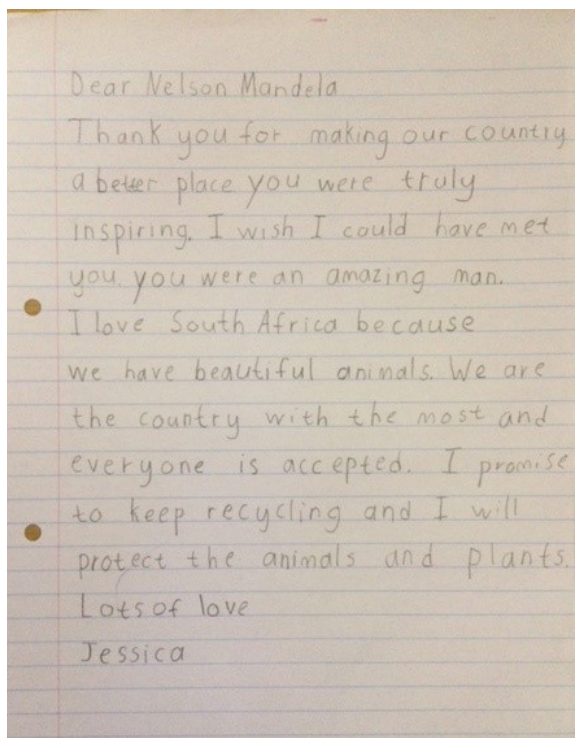 Dear Nelson Mandela
Thank you for making our country
a better place you were truly
inspiring. I wish I could have met
you. you were an amazing man.
I love South Africa because
we have beautiful animals. We are
the country with the most and
everyone is accepted. I promise
to keep recycling and I will
protect the animals and plants.
Lots of love
Jessica